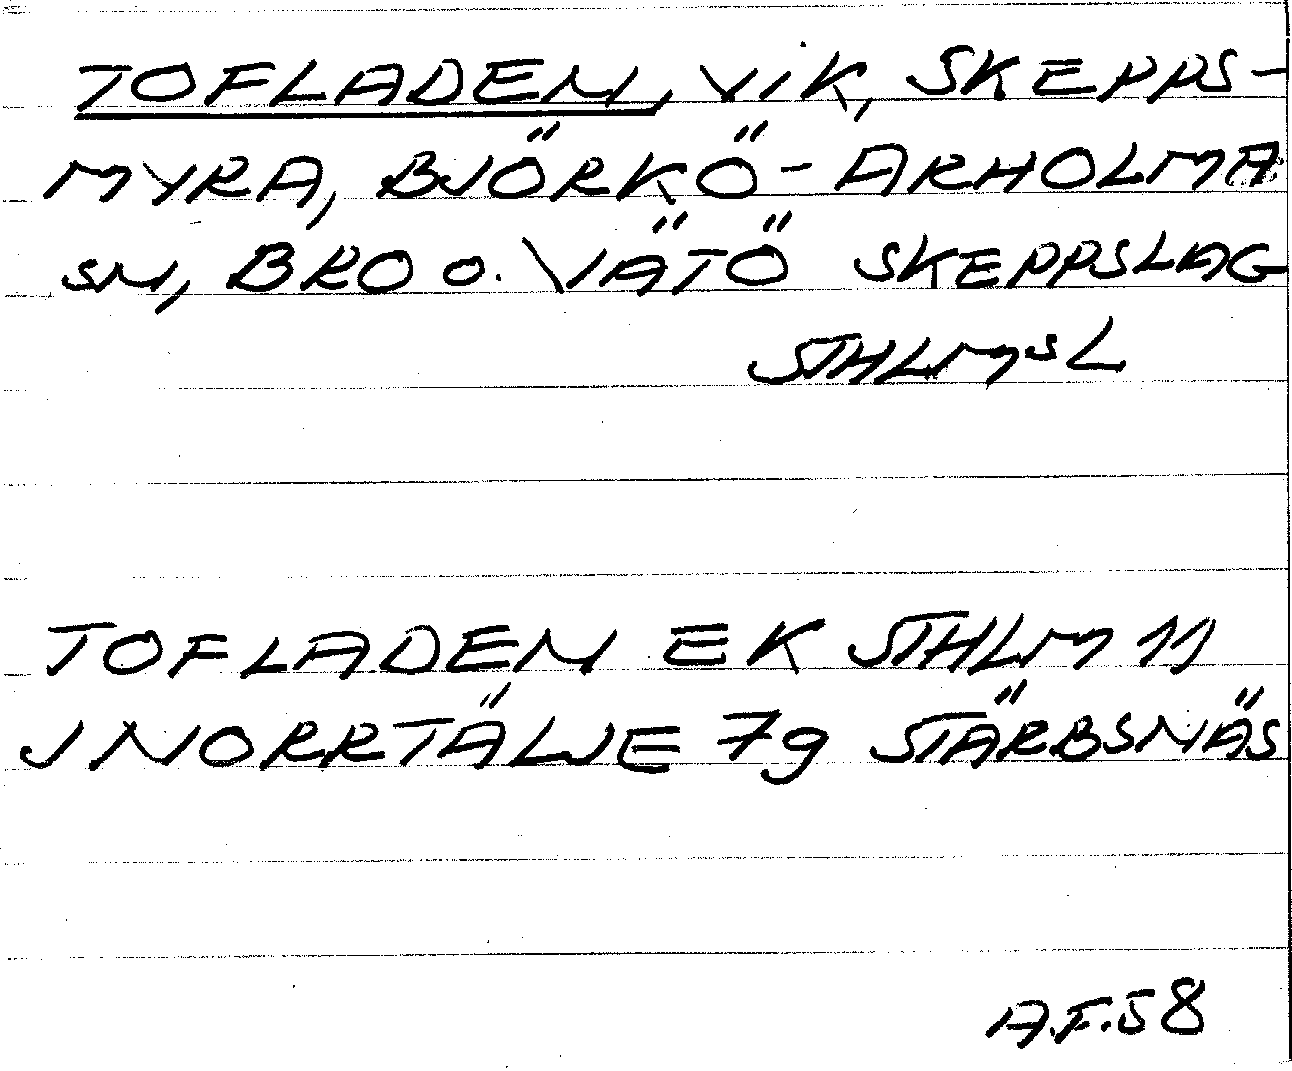 TOFLADEN, VIK, SKEPPS-
MYRA, BJÖRKÖ-ARHOLMA
SN, BRO O. VÄTÖ SKEPPSLAG
STHLMS L
TOFLADEN EK STHLM 11
J NORRTÄLJE 7g STÄRBSNÄS
A.F.58